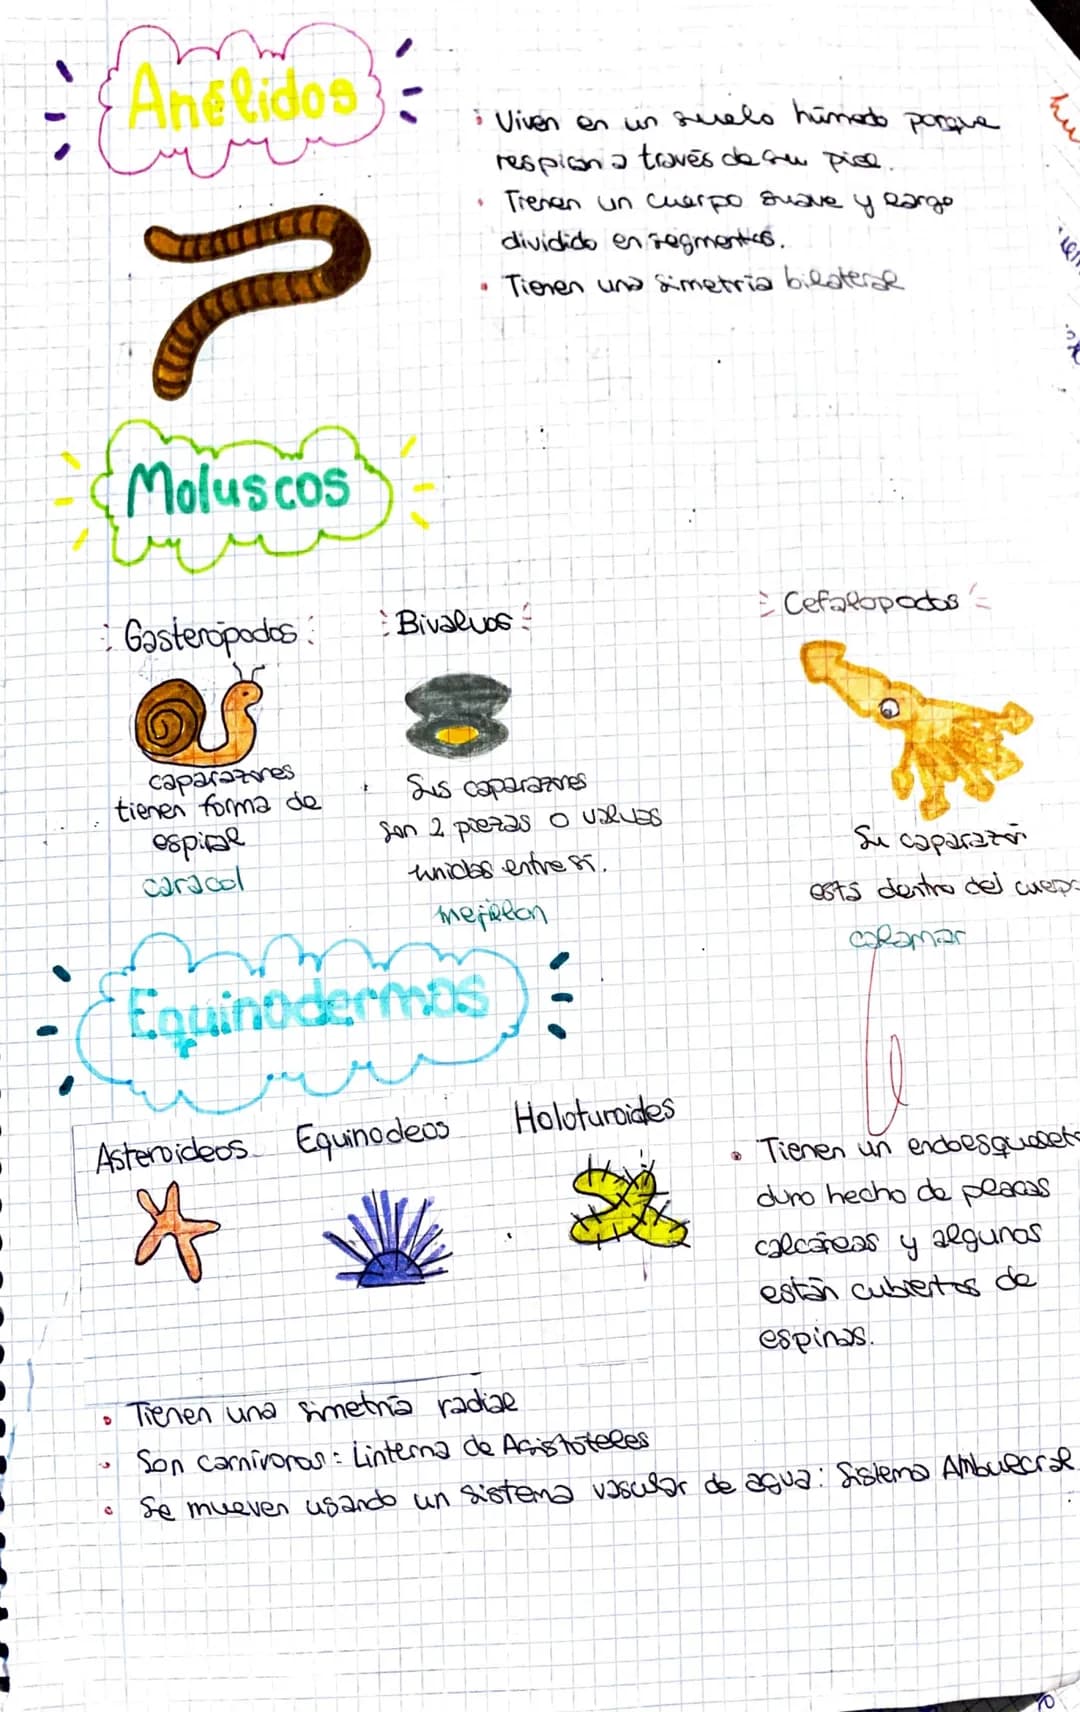 Anélidos
Viven en un suelo húmedo porque
respiran a través de su piel.
Tienen un cuerpo suave y largo
dividido en segmentos.
Tienen una simetría bilateral
Moluscos
Gasterópodos
caparazones
tienen forma de
espiral
caracol
Bivalvos
Sus caparazones
son 2 piezas o valvas
unidas entre sí.
mejillon
Cefalopodos
Su caparazón
está dentro del cuerpo
calamar
Equinodermos
Asteroideos
Equinodeos
Holoturoides
Tienen un endoesquelet
duro hecho de placas
calcáreas y algunos
están cubiertos de
espinas.
Tienen una simetría radial
Son carnívoros: Linterna de Aristóteles
Se mueven usando un sistema vascular de agua: Sistema Ambulacral